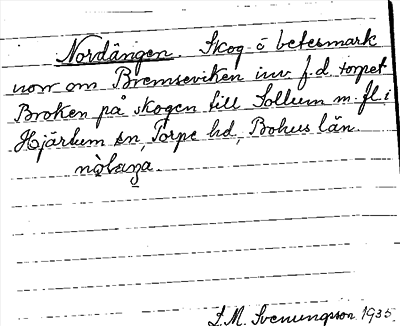 Nordängen. Skog o betesmark
norr om Bremseviken inv. f.d. torpet
Broken på skogen till Sollum m. fl. i
Hjärtum sn, Torpe hd, Bohus län.
nòlaŋa.
L. M. Svenungsson 1935.